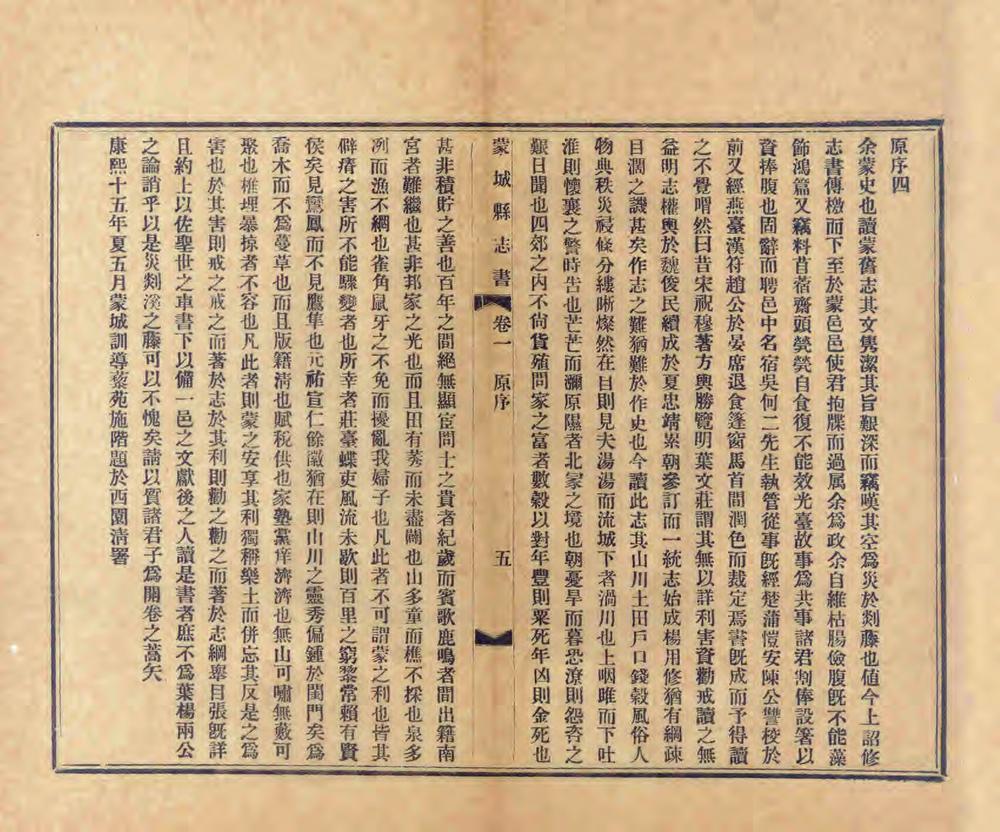 原序四
余蒙史也讀蒙舊志其文雋潔其旨艱深而竊嘆其空為災於剡藤也値今上詔修
志書傳檄而下至於蒙邑邑使君抱牒而過属余為政余自維枯腸儉腹旣不能藻
飾鴻篇又竊料苜蓿齋頭煢煢自食復不能效光臺故事為共事諸君割俸設箸以
資捧腹也固辭而聘邑中名宿吳何二先生執管從事旣經楚蒲愷安陳公讐校於
前又經燕臺漢符趙公於晏席退食篷窗馬首間潤色而裁定焉書旣成而予得讀
之不覺喟然曰昔宋祝穆著方輿勝覽明葉文莊謂其無以詳利害資勸戒讀之無
益明志權輿於魏俊民續成於夏忠靖累朝叅訂而一統志始成楊用修猶有綱疎
目濶之譏甚矣作志之難猶難於作史也今讀此志其山川土田戶口錢穀風俗人
物典秩災祲條分縷晰燦然在目則見夫湯湯而流城下者渦川也上咽睢而下吐
淮則懷襄之警時告也芒芒而瀰原隰者北冡之境也朝憂旱而暮恐潦則怨咨之
艱日聞也四郊之內不尙貨殖問家之富者數穀以對年豐則粟死年凶則金死也
蒙城縣志書 卷一 原序 五
甚非積貯之善也百年之間絕無顯宦問士之貴者紀歲而賓歌鹿鳴者間出籍南
宮者難繼也甚非邦家之光也而且田有莠而未盡闢也山多童而樵不採也泉多
冽而漁不綱也雀角鼠牙之不免而擾亂我婦子也凡此者不可謂蒙之利也皆其
僻瘠之害所不能驟變者也所幸者莊臺蝶吏風流未歇則百里之窮黎常賴有賢
侯矣見鸞鳳而不見鷹隼也元祐宣仁餘徽猶在則山川之靈秀偏鍾於閨門矣為
喬木而不為蔓草也而且版籍淸也賦稅供也家塾黨庠濟濟也無山可嘯無藪可
聚也椎埋暴掠者不容也凡此者則蒙之安享其利獨稱樂土而併忘其反是之為
害也於其害則戒之戒之而著於志於其利則勸之勸之而著於志綱舉目張旣詳
且約上以佐聖世之車書下以備一邑之文獻後之人讀是書者庶不為葉楊兩公
之論誚乎以是災剡溪之藤可以不愧矣請以質諸君子為開卷之蒿矢
康熙十五年夏五月蒙城訓導蓼苑施階題於西園淸署